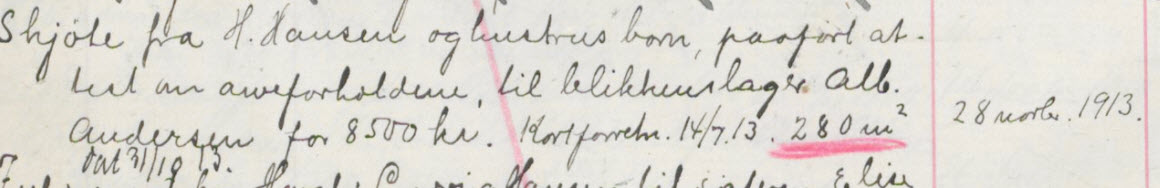 Skjöte fra H. Hansen og hustrus born, paafört at-
test om arveforholdene, til blikkenslager Alb.
Andersen for 8500 kr. Kortforretn. 14/7.13. 280 m² 28 novbr. 1913.
Dat 31/10 13.
Hansen til Elise